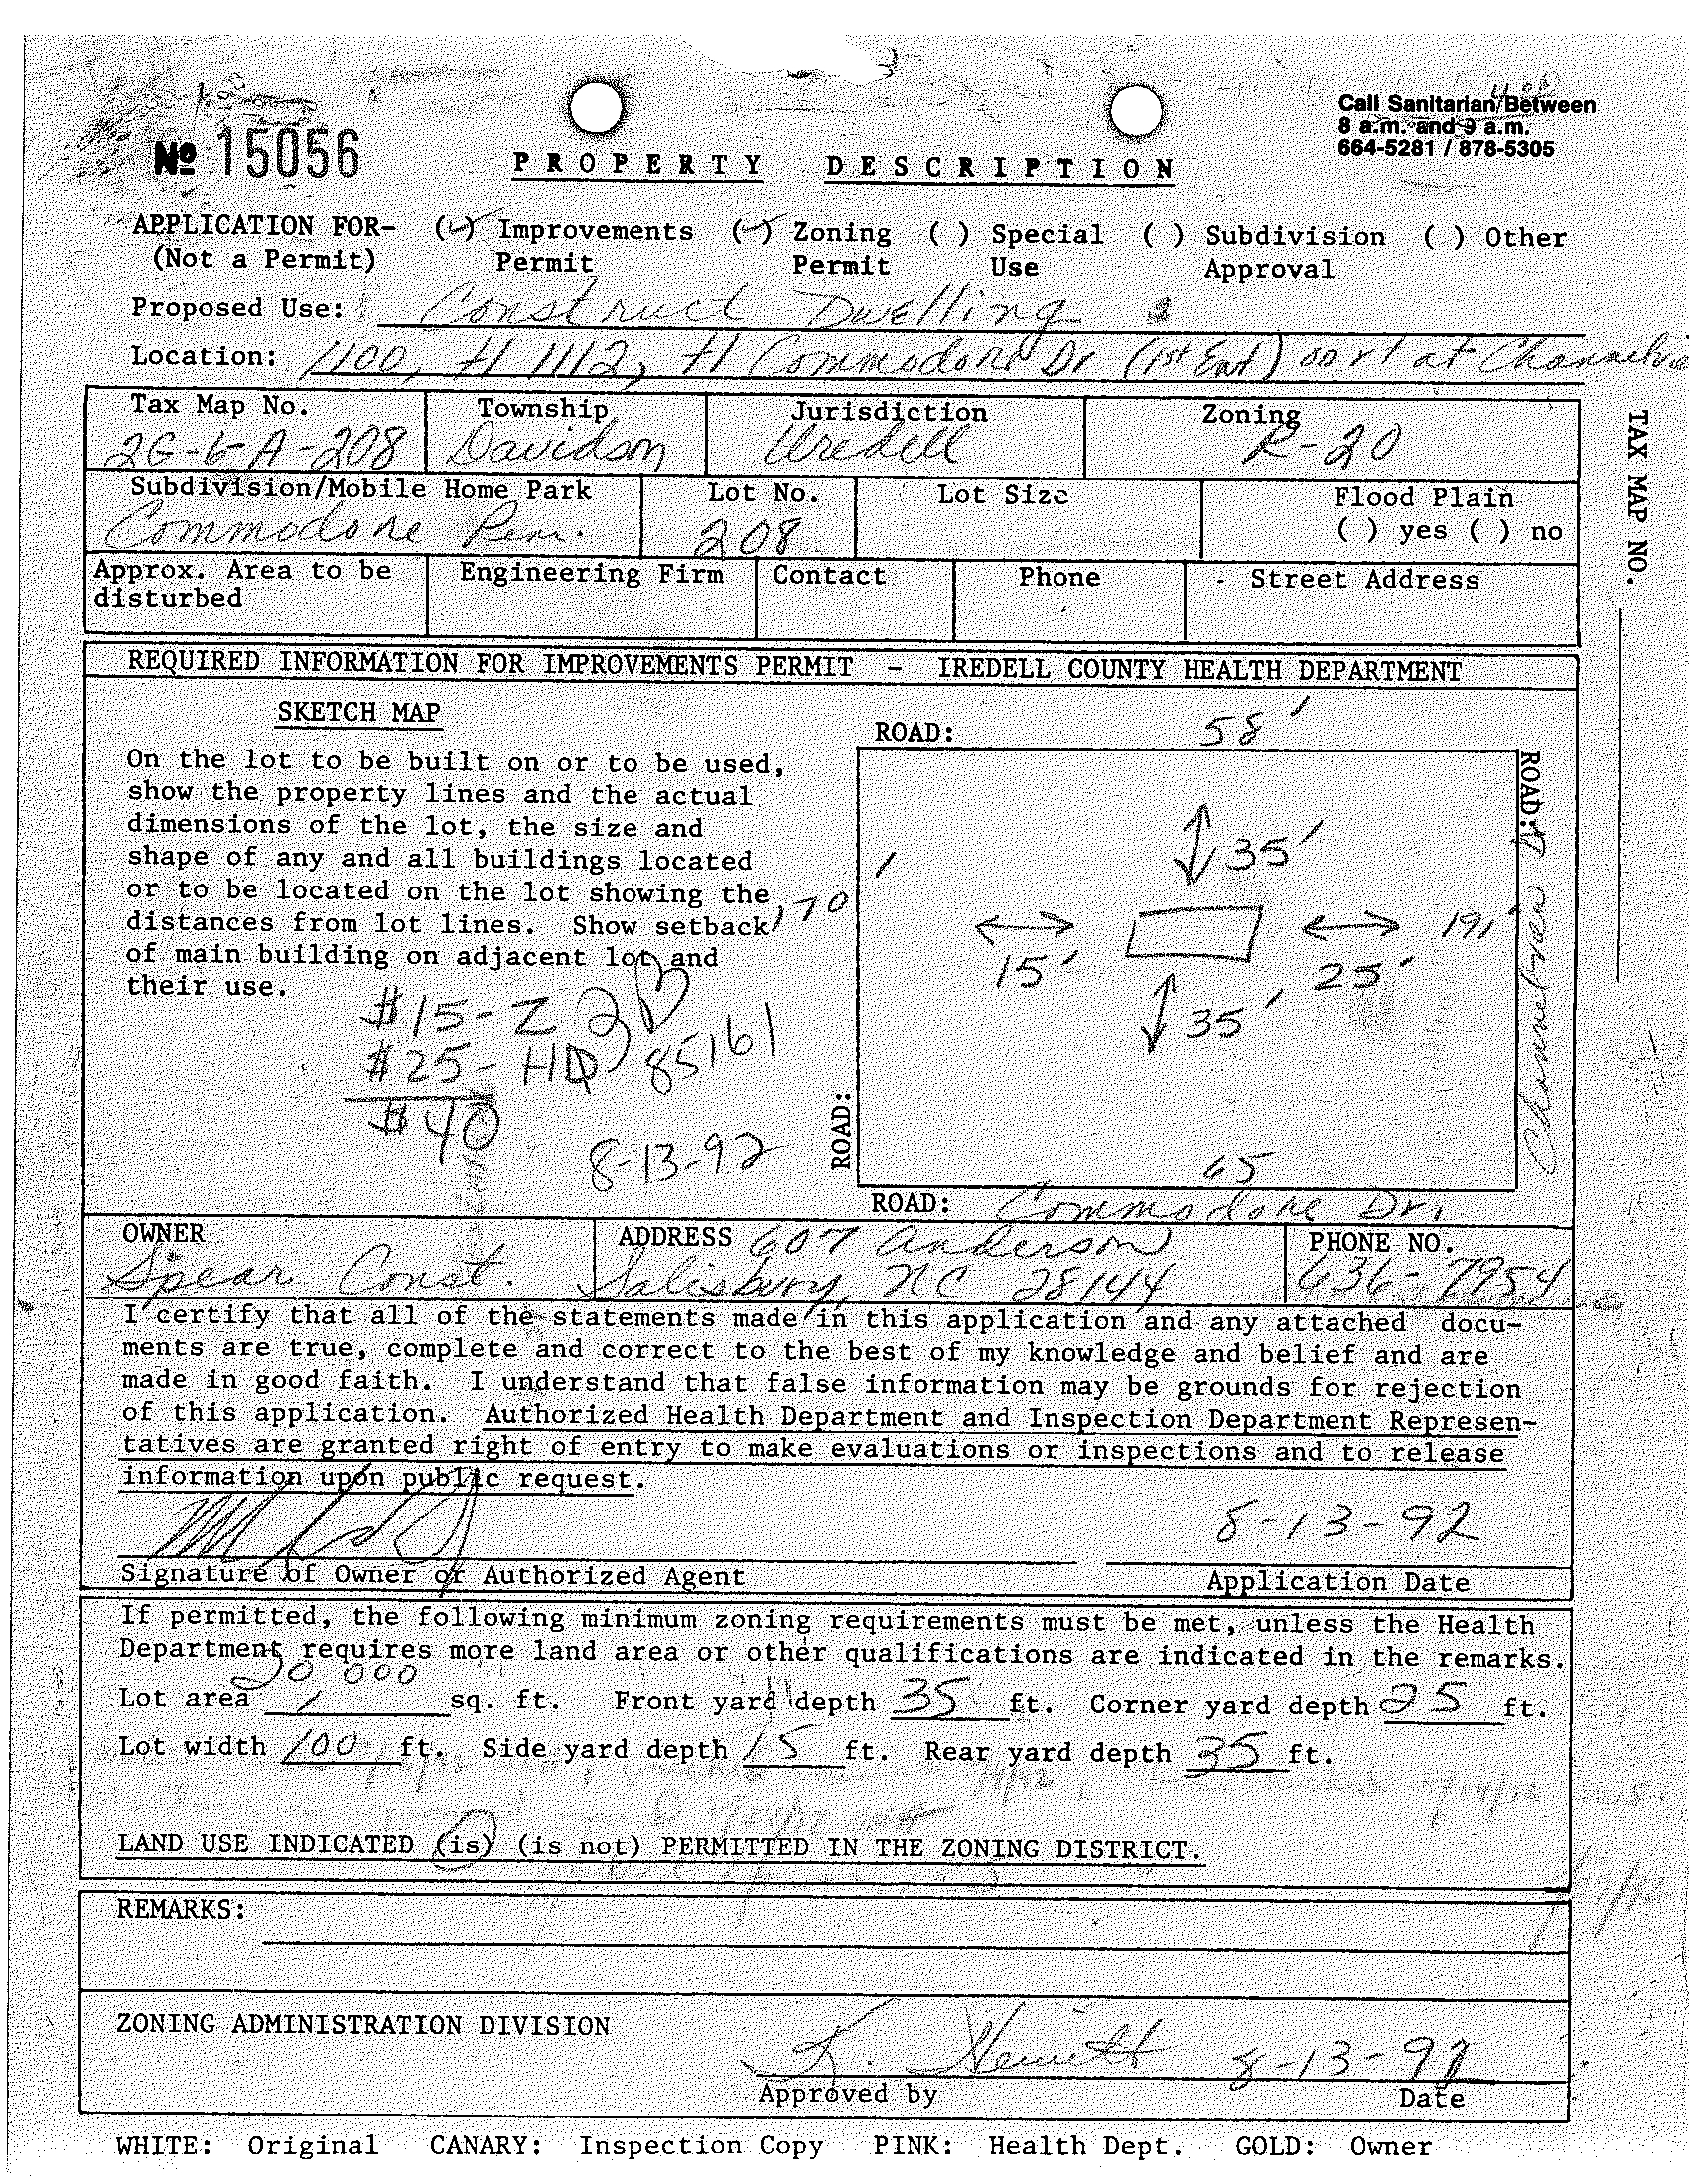 Call Sanitarian Between
8 a.m. and 9 a.m.
664-5281 / 878-5305
№ 15056
PROPERTY DESCRIPTION
APPLICATION FOR- (✓) Improvements (✓) Zoning ( ) Special ( ) Subdivision ( ) Other
(Not a Permit) Permit Permit Use Approval
Proposed Use: Construct Dwelling
Location: 1100, tl 1112, tl Commodore Dr (1st Ent) on rt at
Tax Map No. Township Jurisdiction Zoning
2G-6-A-208 Davidson Iredell R-20
Subdivision/Mobile Home Park Lot No. Lot Size Flood Plain
Commodore Pen. 208 ( ) yes ( ) no
Approx. Area to be Engineering Firm Contact Phone Street Address
disturbed
TAX MAP NO.
REQUIRED INFORMATION FOR IMPROVEMENTS PERMIT - IREDELL COUNTY HEALTH DEPARTMENT
SKETCH MAP
On the lot to be built on or to be used,
show the property lines and the actual
dimensions of the lot, the size and
shape of any and all buildings located
or to be located on the lot showing the
distances from lot lines. Show setback
of main building on adjacent lot and
their use.
$15-Z
$25-HD 85161
$40
8-13-92
ROAD: 58'
35'
170'
15' 25' 191'
35'
65
ROAD:
ROAD:
ROAD: Commodore Dr.
OWNER ADDRESS 607 Anderson PHONE NO.
Spear Const. Salisbury, NC 28144 636-7954
I certify that all of the statements made in this application and any attached docu-
ments are true, complete and correct to the best of my knowledge and belief and are
made in good faith. I understand that false information may be grounds for rejection
of this application. Authorized Health Department and Inspection Department Represen-
tatives are granted right of entry to make evaluations or inspections and to release
information upon public request.
8-13-92
Signature of Owner or Authorized Agent Application Date
If permitted, the following minimum zoning requirements must be met, unless the Health
Department requires more land area or other qualifications are indicated in the remarks.
Lot area 20,000 sq. ft. Front yard depth 35 ft. Corner yard depth 25 ft.
Lot width 100 ft. Side yard depth 15 ft. Rear yard depth 35 ft.
LAND USE INDICATED (is) (is not) PERMITTED IN THE ZONING DISTRICT.
REMARKS:
ZONING ADMINISTRATION DIVISION
K. Hewitt 8-13-92
Approved by Date
WHITE: Original CANARY: Inspection Copy PINK: Health Dept. GOLD: Owner